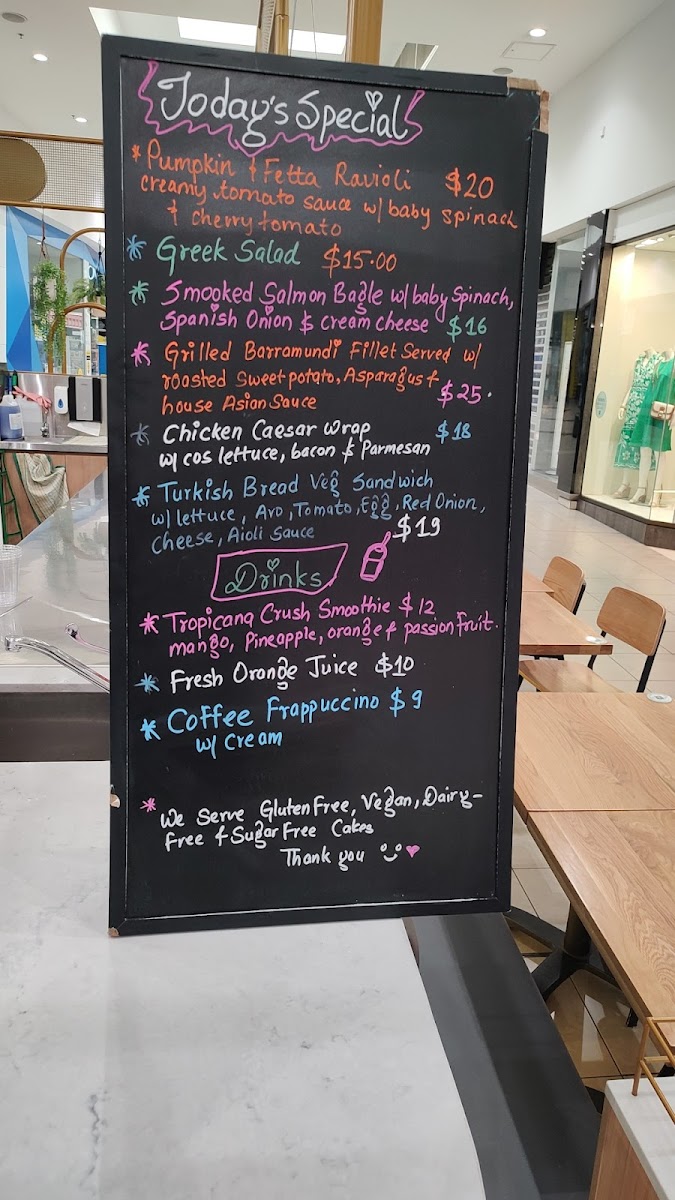 Today's Special
* Pumpkin & Fetta Ravioli $20
creamy tomato sauce w/ baby spinach
& cherry tomato
* Greek Salad $15.00
* Smooked Salmon Bagle w/ baby Spinach,
Spanish Onion & cream cheese $16
* Grilled Barramundi Fillet Served w/
roasted Sweet potato, Asparagus &
house Asian Sauce $25.
* Chicken Caesar Wrap $18
w/ cos lettuce, bacon & Parmesan
* Turkish Bread Veg Sandwich
w/ lettuce, Avo, Tomato, Egg, Red Onion,
Cheese, Aioli Sauce $19
Drinks
* Tropicana Crush Smoothie $12
mango, Pineapple, orange & passion fruit.
* Fresh Orange Juice $10
* Coffee Frappuccino $9
w/ Cream
* We Serve Gluten Free, Vegan, Dairy-
Free & Sugar Free Cakes
Thank you